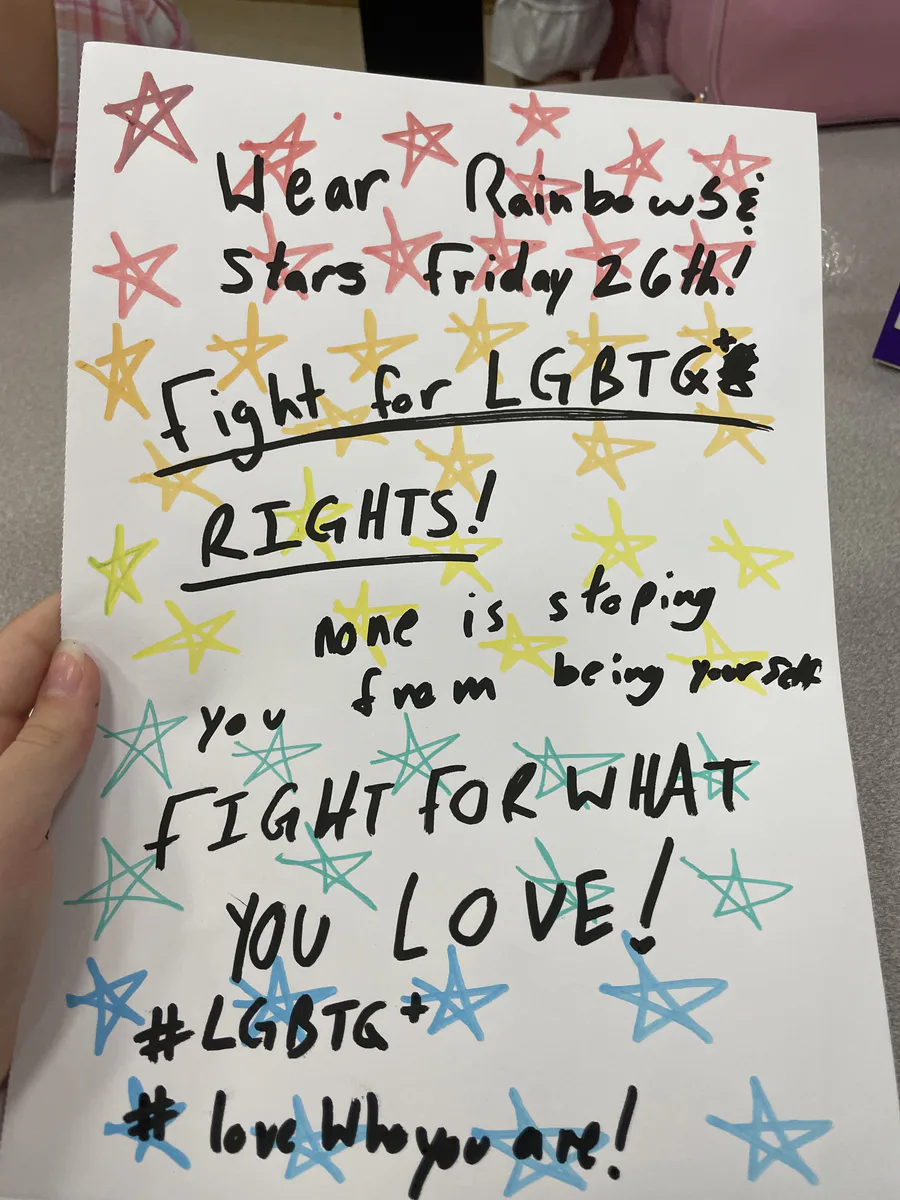 Wear Rainbows &
Stars Friday 26th!
Fight for LGBTQ+
RIGHTS!
none is stoping
you from being yourself
FIGHT FOR WHAT
YOU LOVE!
#LGBTQ+
# love Who you are!